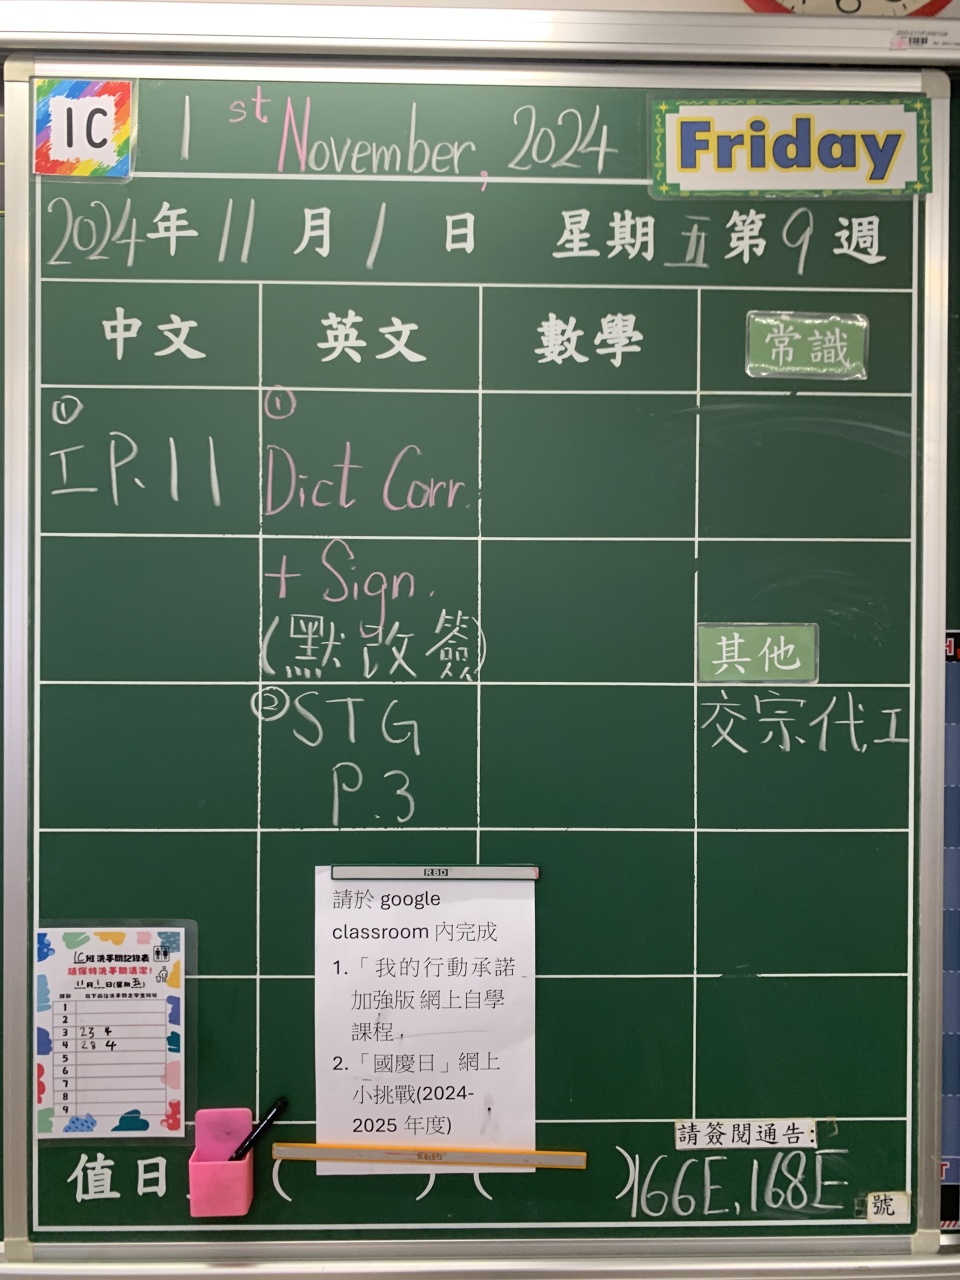 1C
1st November, 2024
Friday
2024年11月1日 星期五第9週
中文
英文
數學
常識
①
工P.11
①
Dict Corr.
+ Sign.
(默改簽)
②STG
P.3
其他
交宗代工
RBD
請於 google
classroom 內完成
1.「我的行動承諾
加強版 網上自學
課程,
2.「國慶日」網上
小挑戰(2024-
2025 年度)
1C班洗手間記錄表
請保持洗手間清潔!
11月1日(星期五)
1
2
3 23 4
4 28 4
5
6
7
8
9
值日
( ) ( )
請簽閱通告:
166E,168E
號